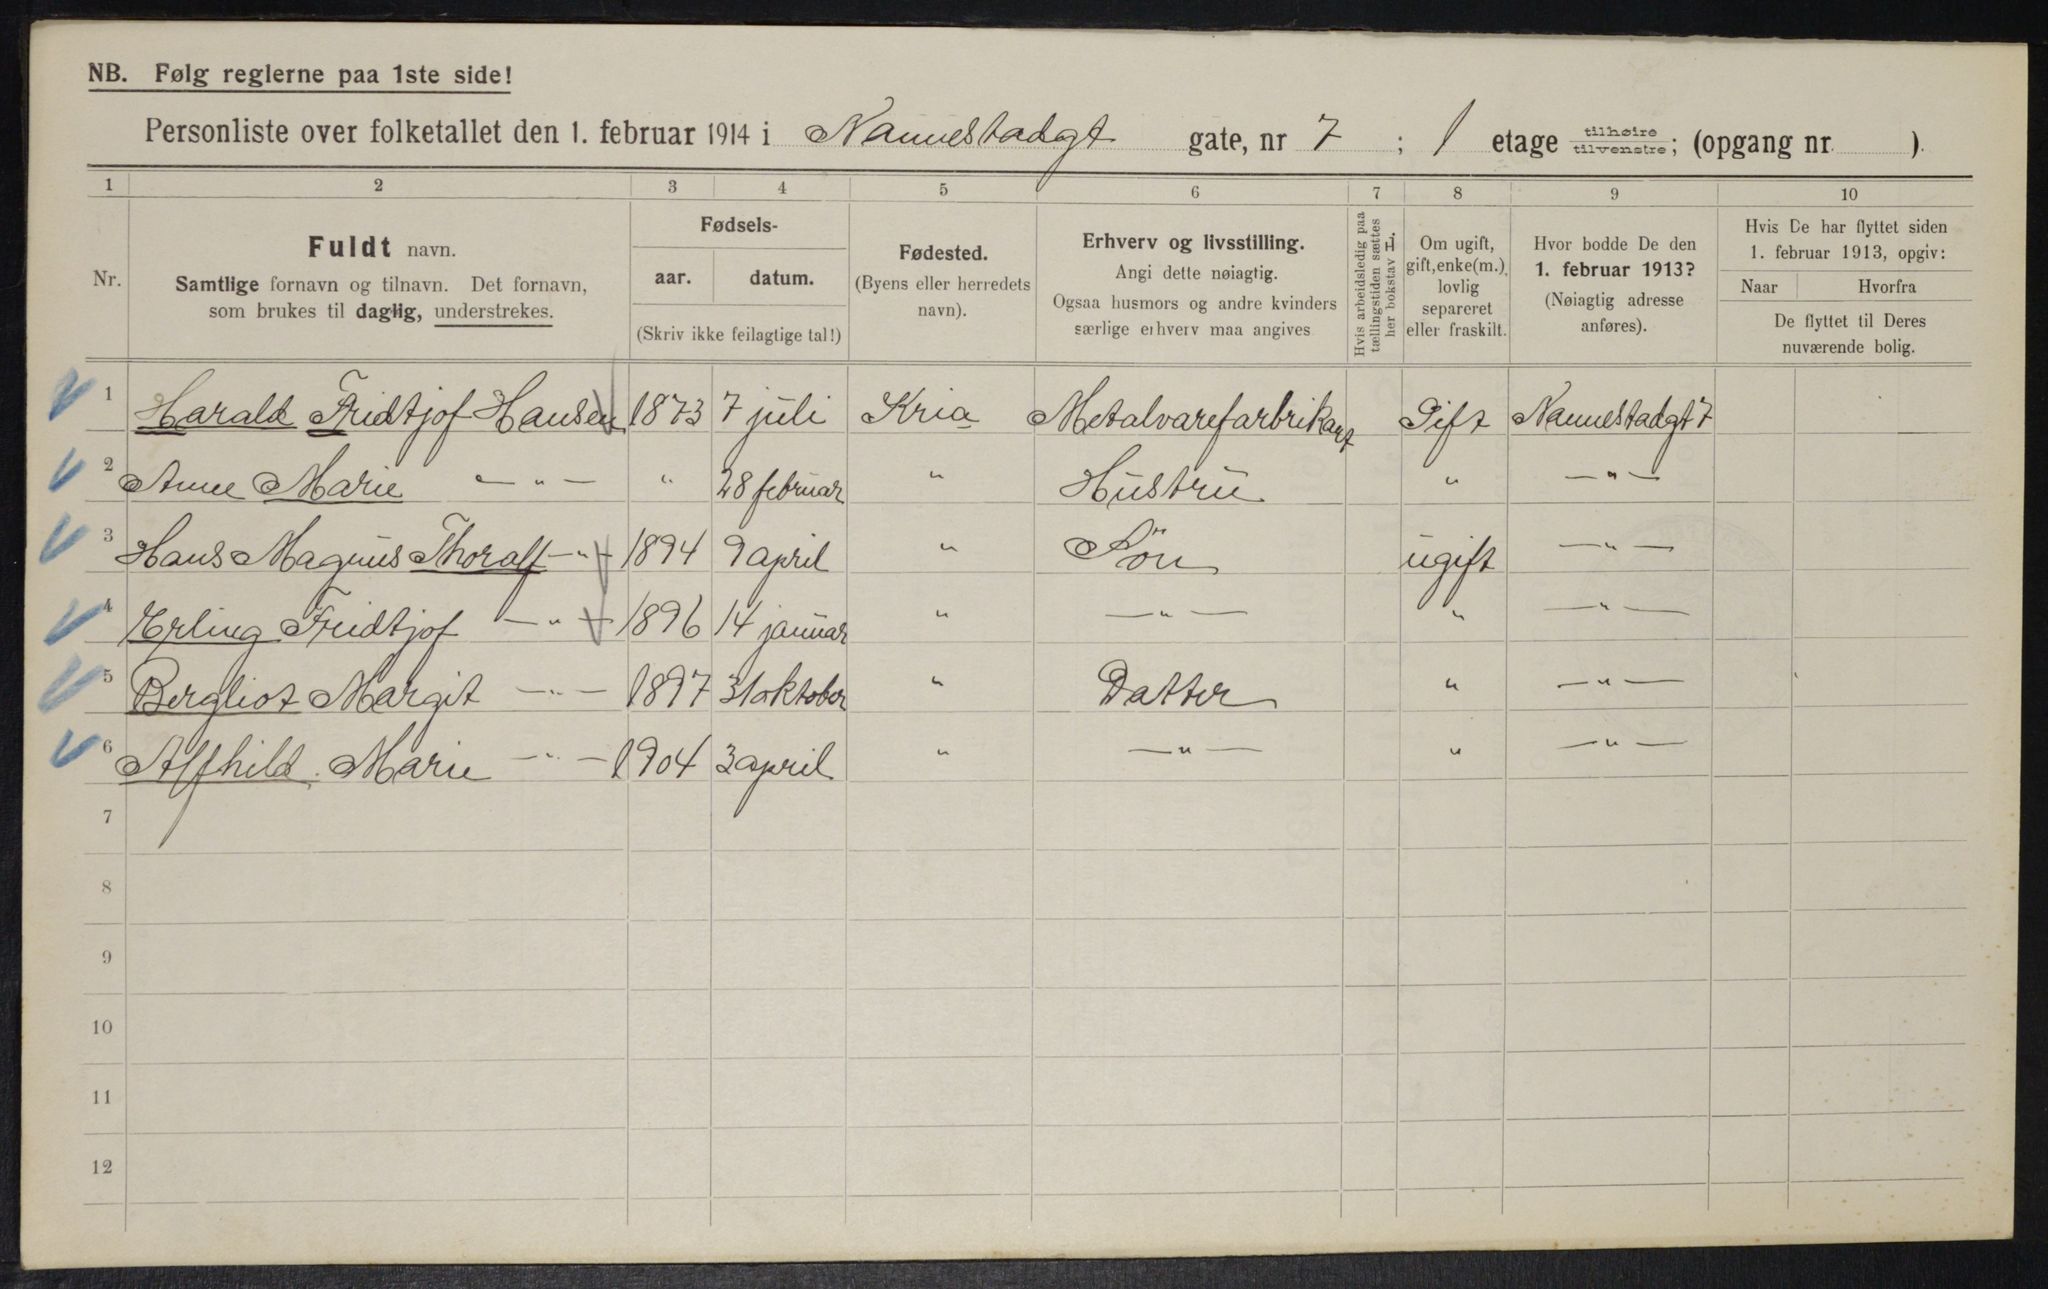 NB. Følg reglerne paa 1ste side!
Personliste over folketallet den 1. februar 1914 i Nannestadgt gate, nr 7 ; 1 etage tilhøire tilvenstre; (opgang nr ).
1 2 3 4 5 6 7 8 9 10
Nr.
Fuldt navn.
Samtlige fornavn og tilnavn. Det fornavn,
som brukes til daglig, understrekes.
Fødsels-
aar. datum.
(Skriv ikke feilagtige tal!)
Fødested.
(Byens eller herredets
navn).
Erhverv og livsstilling.
Angi dette nøiagtig.
Ogsaa husmors og andre kvinders
særlige erhverv maa angives
Hvis arbeidsledig paa
tællingstiden sættes
her bokstav L.
Om ugift,
gift, enke(m.),
lovlig
separeret
eller fraskilt.
Hvor bodde De den
1. februar 1913?
(Nøiagtig adresse
anføres).
Hvis De har flyttet siden
1. februar 1913, opgiv:
Naar Hvorfra
De flyttet til Deres
nuværende bolig.
1 Harald Fridtjof Hansen 1873 7 juli Kria Metalvarefarbrikant Gift Nannestadgt 7
2 Anne Marie — " — " 28 februar " Hustru " — " —
3 Hans Magnus Thoralf — " — 1894 9 april " Sön ugift — " —
4 Erling Fridtjof — " — 1896 14 januar " — " — " — " —
5 Bergliot Margit — " — 1897 31 oktober " Datter " — " —
6 Alfhild Marie — " — 1904 3 april " — " — " — " —
7
8
9
10
11
12